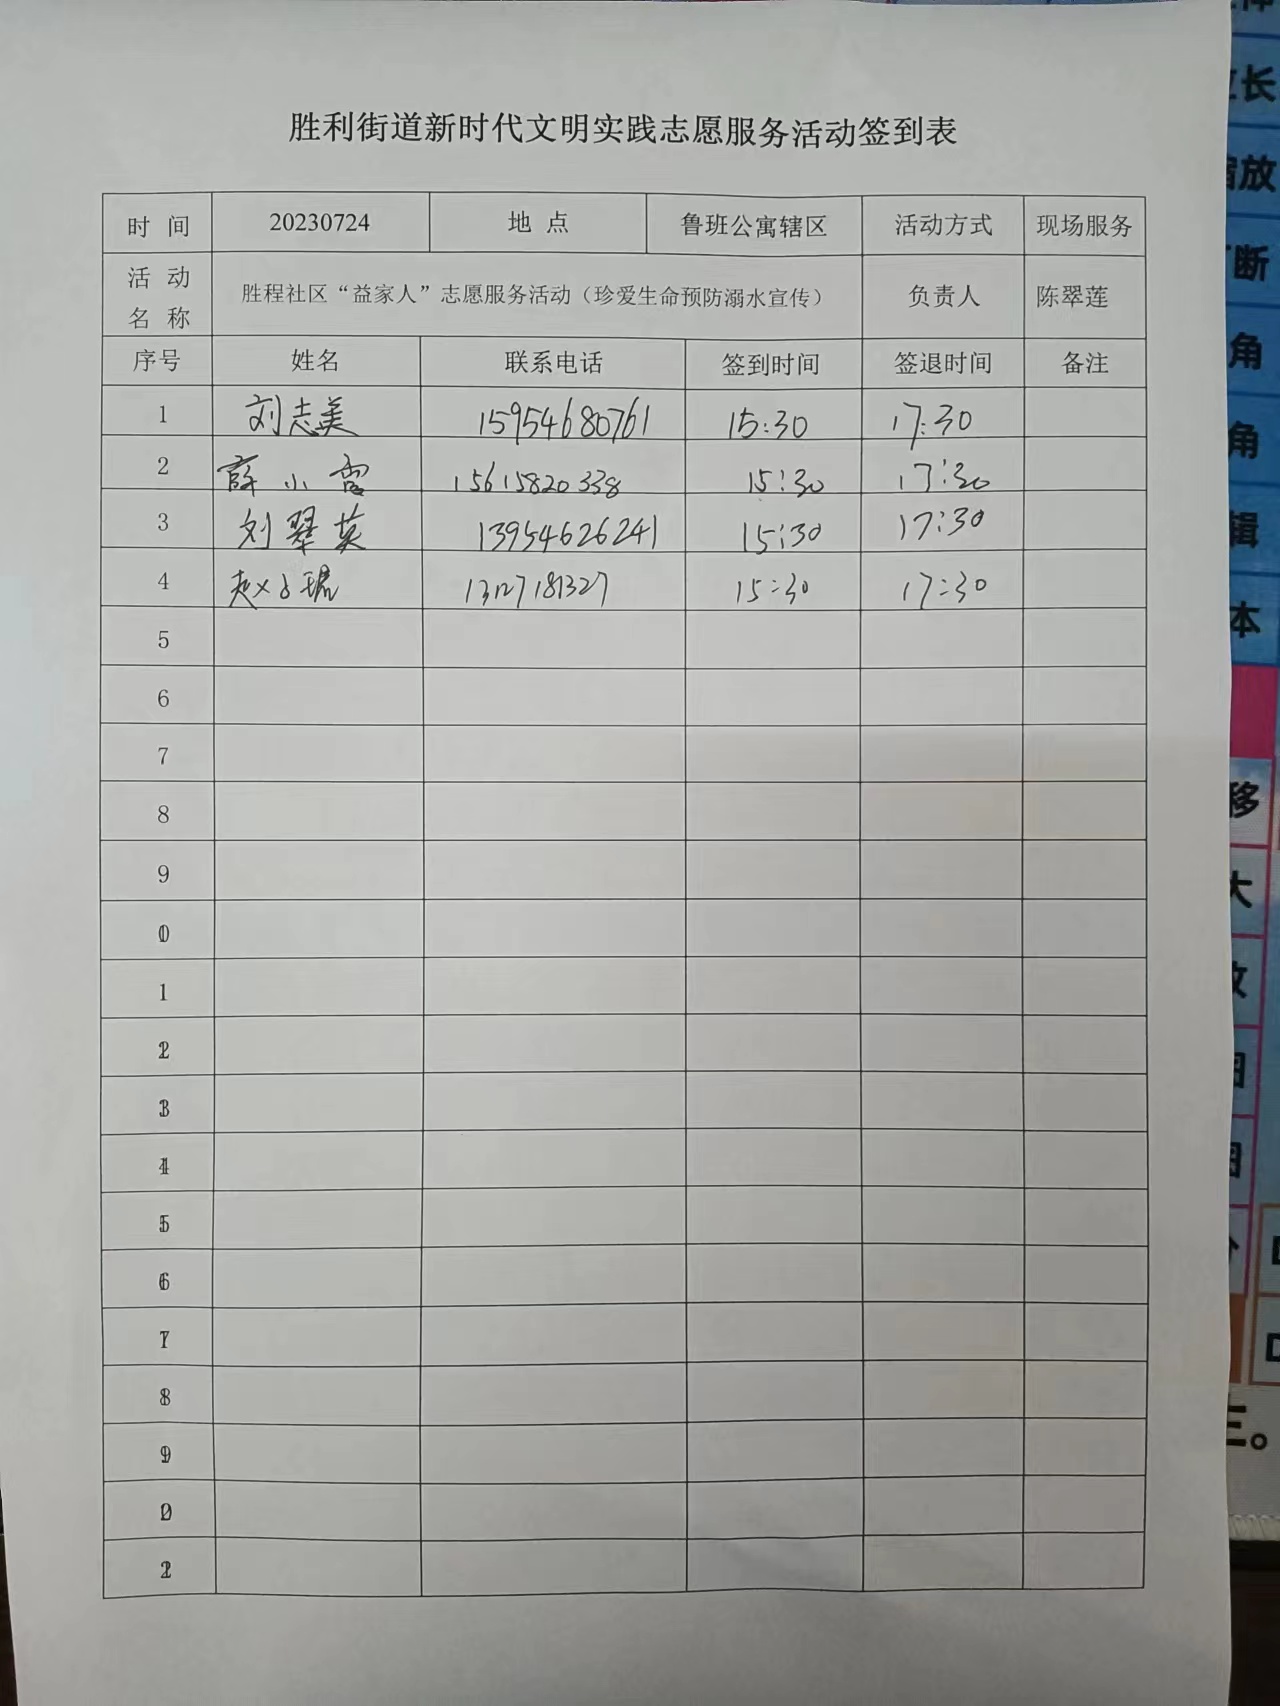 胜利街道新时代文明实践志愿服务活动签到表
时 间 20230724 地 点 鲁班公寓辖区 活动方式 现场服务
活 动 名 称 胜程社区“益家人”志愿服务活动（珍爱生命预防溺水宣传） 负责人 陈翠莲
序号 姓名 联系电话 签到时间 签退时间 备注
1 刘志美 15954680761 15:30 17:30
2 薛小雷 15615820338 15:30 17:30
3 刘翠英 13954626241 15:30 17:30
4 赵子琨 13127181327 15:30 17:30
5
6
7
8
9
0
1
2
3
4
5
6
7
8
9
0
2
长
放
断
角
角
辑
本
移
大